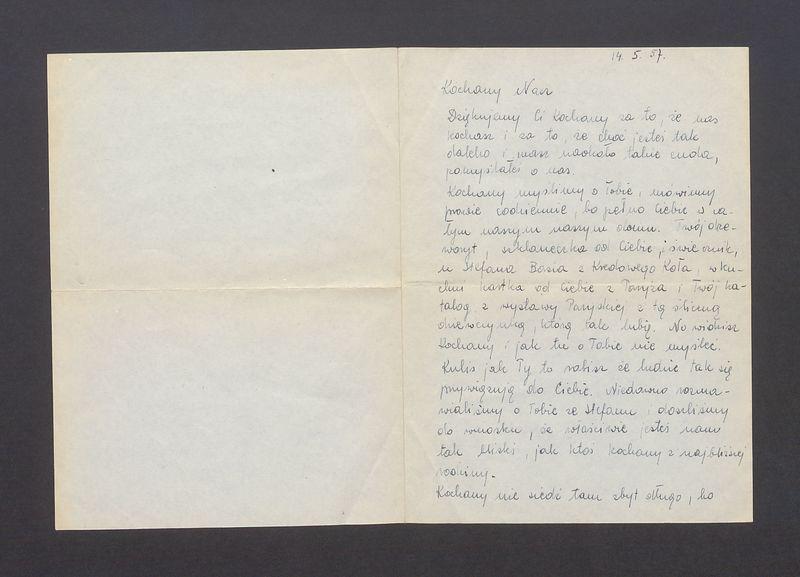 14. 5. 57.
Kochany Nasz
Dziękujemy Ci Kochany za to, że nas
kochasz i za to, że choć jesteś tak
daleko i masz naokoło takie cuda,
pomyślałeś o nas.
Kochany myślimy o Tobie, mówimy
prawie codziennie, bo pełno Ciebie w ca-
łym naszym naszym domu. Twój drze-
woryt, szklaneczka od Ciebie, i świecznik,
u Stefana Basia z Kredowego Koła, w ku-
chni kartka od Ciebie z Paryża i Twój ka-
talog z wystawy Paryskiej z tą śliczną
dziewczynką, którą tak lubię. No widzisz
Kochany i jak tu o Tobie nie myśleć.
Kubiś jak Ty to robisz że ludzie tak się
przywiązują do Ciebie. Niedawno rozma-
wialiśmy o Tobie ze Stefanem i doszliśmy
do wniosku, że właściwie jesteś nam
tak bliski, jak ktoś kochany z najbliższej
rodziny.
Kochany nie siedź tam zbyt długo, bo